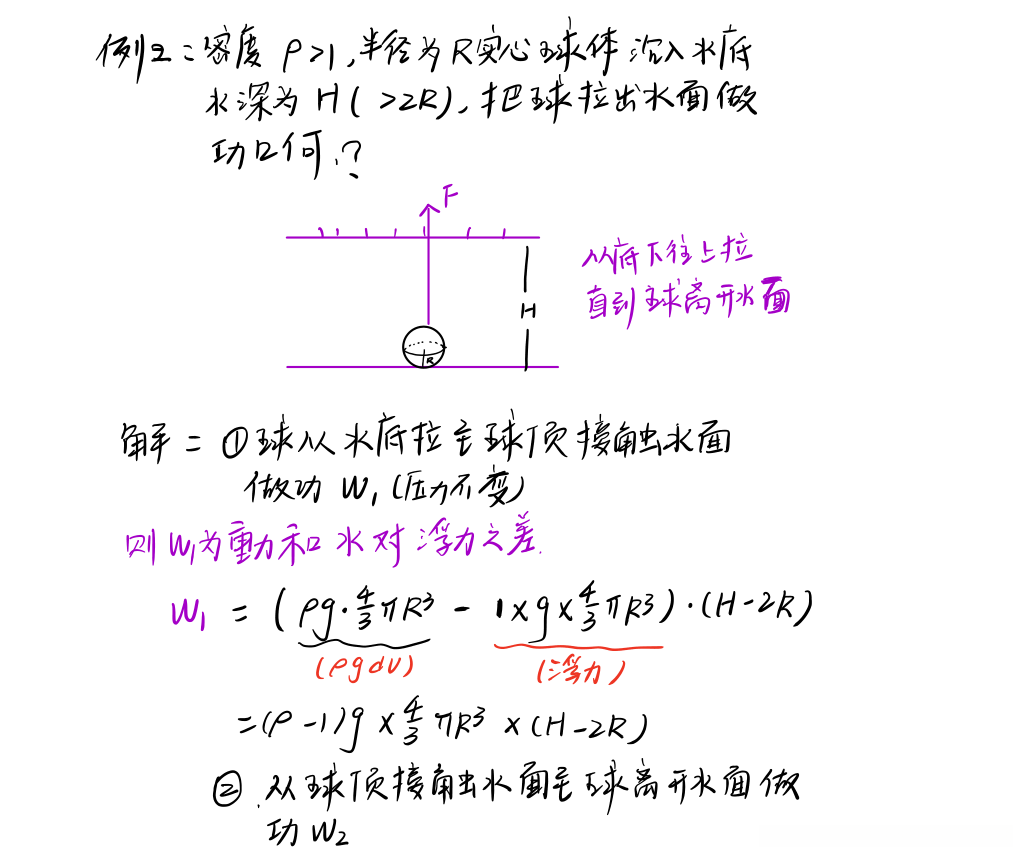 例2：密度 ρ>1，半径为R实心球体沉入水底
水深为 H( >2R)，把球拉出水面做
功口何.?
F
从底下往上拉
直到球离开水面
H
R
解：①球从水底拉至球顶接触水面
做功 W₁ (压力不变)
则W₁为重力和水对浮力之差.
W₁ = (ρg·4/3πR³ - 1×g×4/3πR³)·(H-2R)
(ρgdV) (浮力)
=(ρ-1)g × 4/3 πR³ × (H-2R)
②.从球顶接触水面至球离开水面做
功W₂